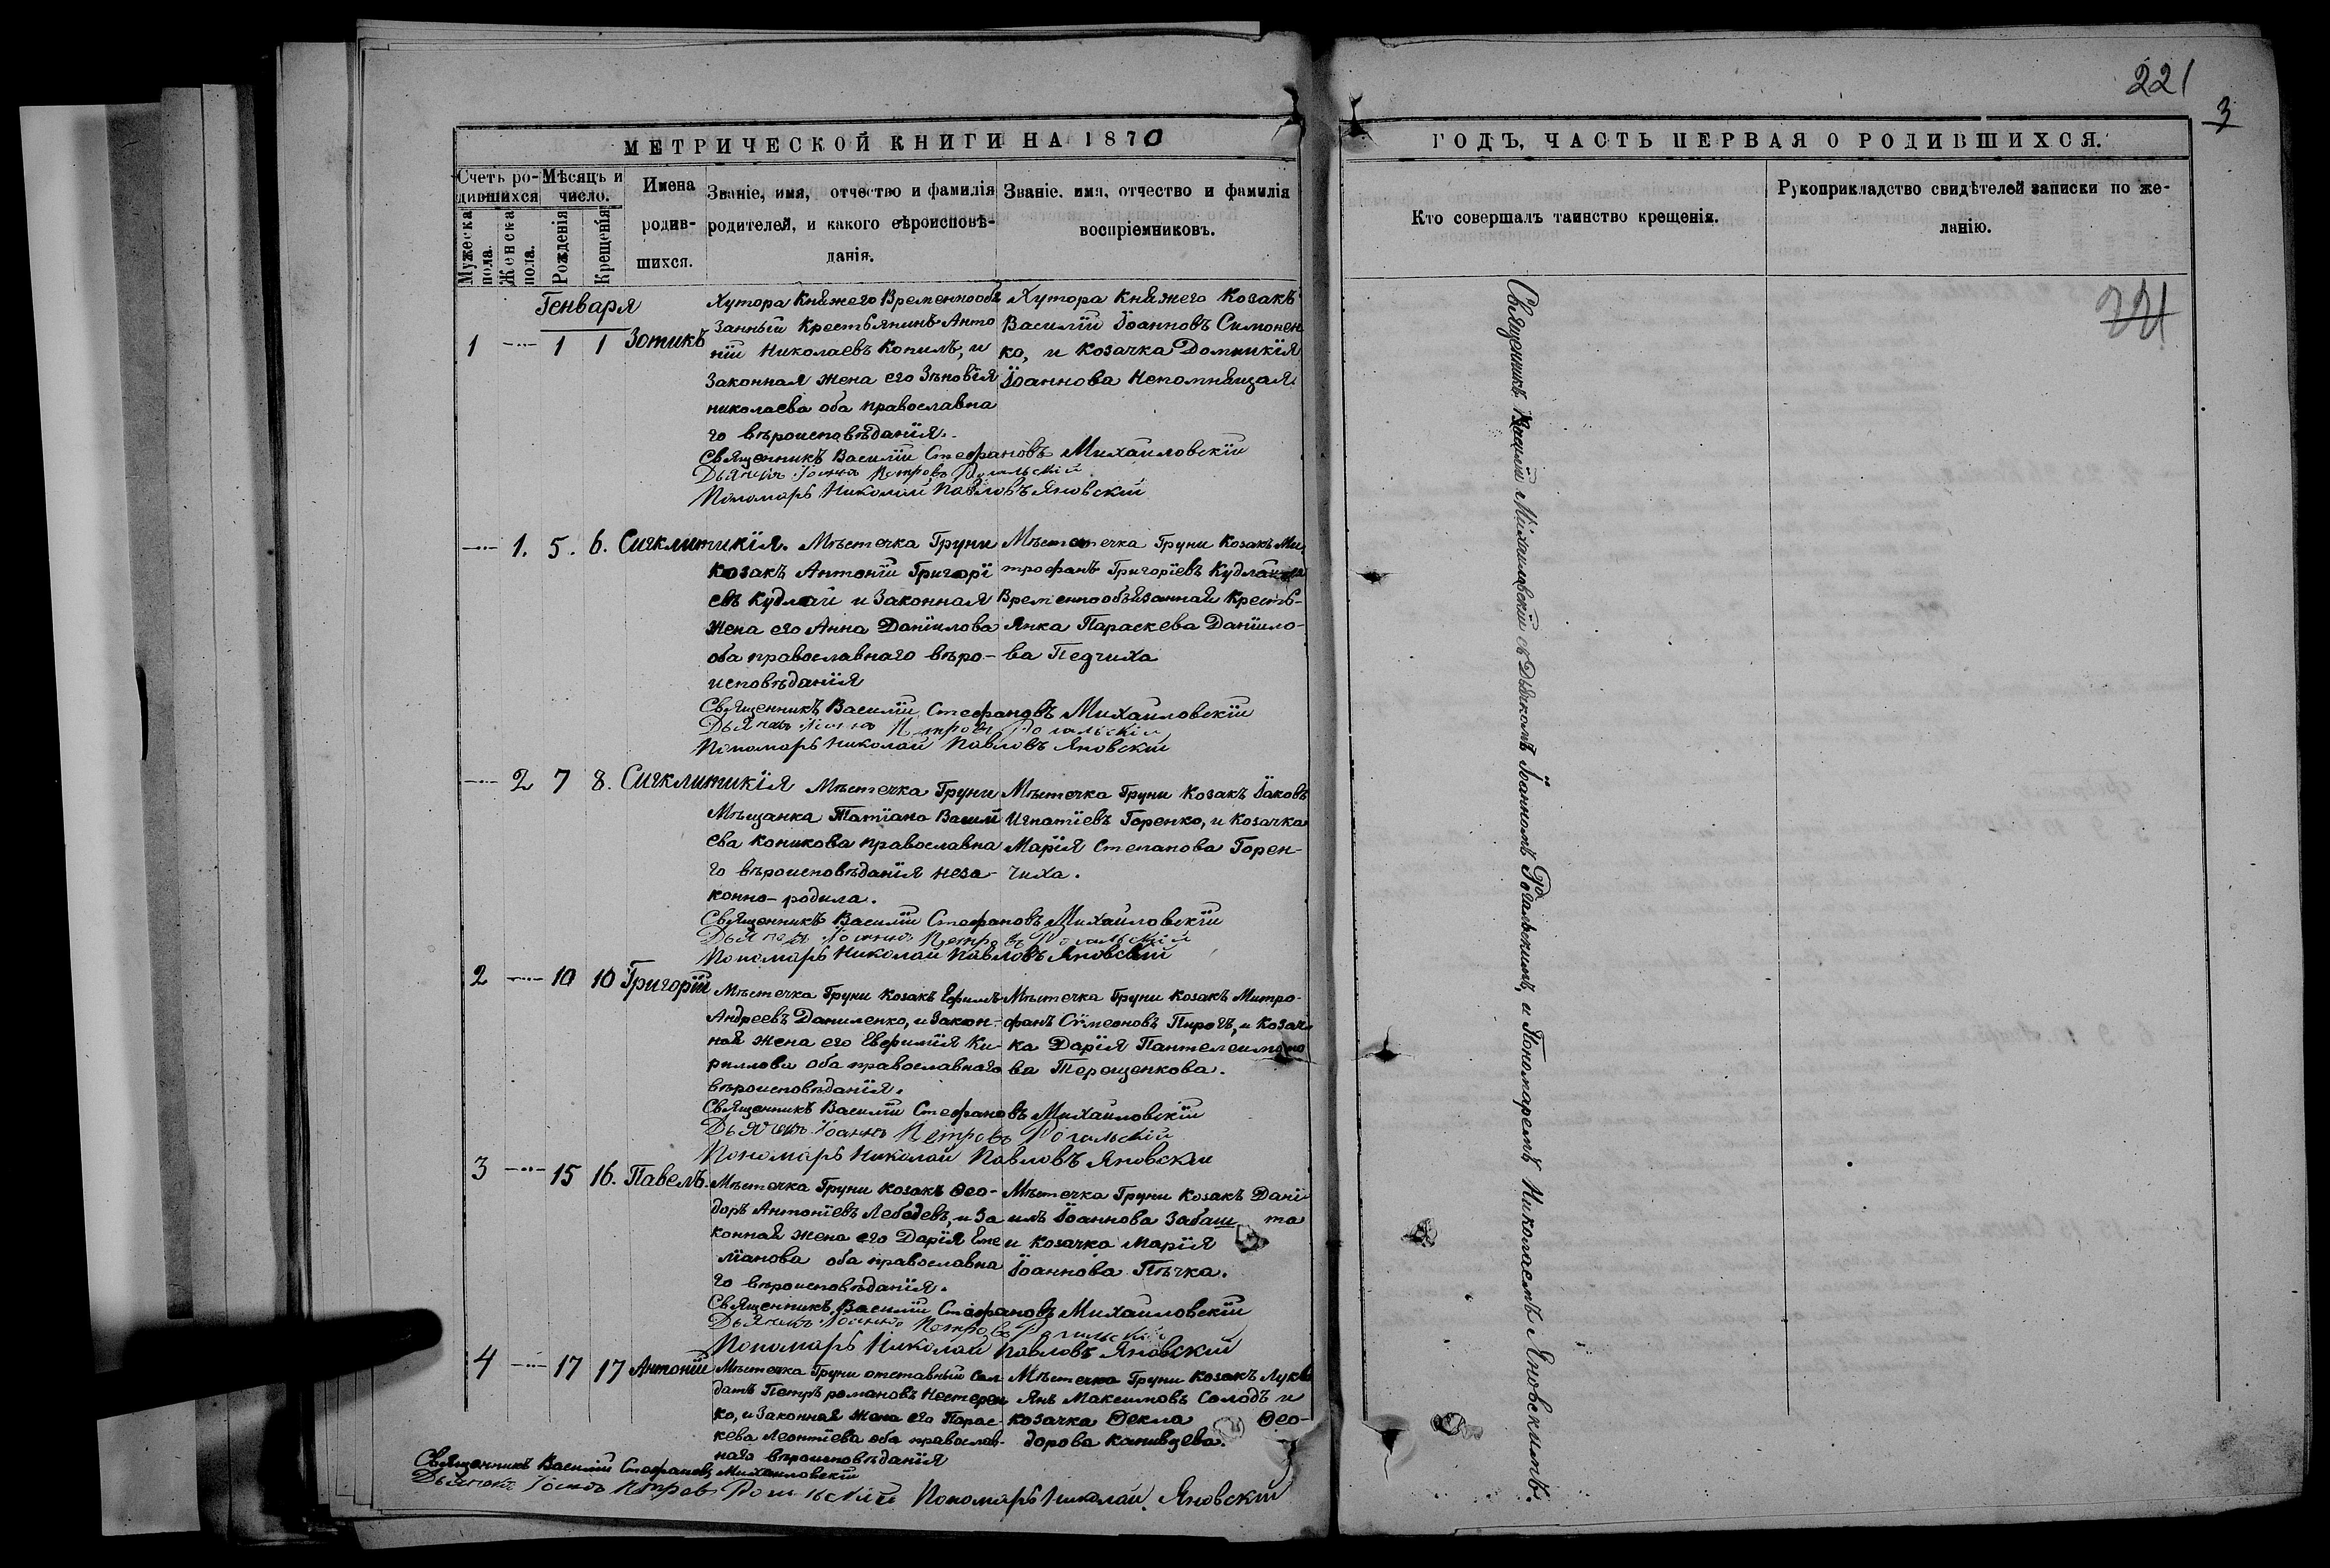 221
3
МЕТРИЧЕСКОЙ КНИГИ НА 1870
ГОДЪ, ЧАСТЬ ПЕРВАЯ О РОДИВШИХСЯ.
Счетъ ро-
дившихся
Мѣсяцъ и
число.
Мужеска
пола.
Женска
пола.
Рожденія
Крещенія
Имена
родив-
шихся.
Званіе, имя, отчество и фамилія
родителей, и какого вѣроисповѣ-
данія.
Званіе, имя, отчество и фамилія
воспріемниковъ.
Кто совершалъ таинство крещенія.
Рукоприкладство свидѣтелей записки по же-
ланію.
Генваря
1 1 1 Зотикъ
Хутора Княжего Временнообя
занный Крестьянинъ Анто
ній Николаевъ Копилъ, и
Законная жена его Зѣновія
николаева оба православна
го вѣроисповѣданія.
Хутора Княжего Козакъ
Василій Іоанновъ Симонен
ко, и Козачка Домникія
Іоаннова Непомнящая
Священникъ Василій Стефановъ Михаиловскій
Дьячекъ Іоаннъ Петровъ Рогальскій
Пономарь Николай Павловъ Яновскій
1. 5. 6. Сигклитикія.
Мѣстечка Груни
Козакъ Антоній Григорі
евъ Кудлай и Законная
жена его Анна Даніилова
оба православнаго вѣро-
исповѣданія
Мѣстечка Груни Козакъ Ми
трофанъ Григоріевъ Кудлай
Временнообязанная Кресть-
янка Параскева Даніило-
ва Педчиха
Священникъ Василій Стефановъ Михаиловскій
Дьячекъ Іоаннъ Петровъ Рогальскій
Пономарь Николай Павловъ Яновскій
2 7 8. Сигклитикія
Мѣстечка Груни
Мѣщанка Татіана Васілі
ева Коникова православна
го вѣроисповѣданія неза-
конно-родила.
Мѣстечка Груни Козакъ Іаковъ
Игнатіевъ Горенко, и Козачка
Марія Степанова Горен-
чиха.
Священникъ Василій Стефановъ Михаиловскій
Дьячекъ Іоаннъ Петровъ Рогальскій
Пономарь Николай Павловъ Яновскій
2 10 10 Григорій
Мѣстечка Груни Козакъ Ефимъ
Андреевъ Даниленко, и Закон-
ная жена его Евфимія Ки-
рилова оба православнаго
вѣроисповѣданія.
Мѣстечка Груни Козакъ Митро-
фанъ Симеоновъ Пирогъ, и Козач
ка Дарія Пантелеимоно
ва Терещенкова.
Священникъ Василій Стефановъ Михаиловскій
Дьячекъ Іоаннъ Петровъ Рогальскій
Пономарь Николай Павловъ Яновскій
3 15 16. Павелъ.
Мѣстечка Груни Козакъ Ѳео-
доръ Антоніевъ Лебедевъ, и За
конная жена его Дарія Еме
ліанова оба православна
го вѣроисповѣданія.
Мѣстечка Груни Козакъ Дані
илъ Іоаннова Забаш та
и Козачка Марія
Іоаннова Пѣчка.
Священникъ Василій Стефановъ Михаиловскій
Дьячекъ Іоаннъ Петровъ Рогальскій
Пономарь Николай Павловъ Яновскій
4 17 17 Антоній
Мѣстечка Груни отставный Сол
датъ Петръ романовъ Нестерен
ко, и Законная жена его Парас-
кева Леонтіева оба православ-
наго вѣроисповѣданія
Мѣстечка Груни Козакъ Лукі
янъ Максимовъ Солодъ и
козачка Ѳекла Ѳео-
дорова Канивцева.
Священникъ Василій Стефановъ Михаиловскій
Дьячекъ Іоаннъ Петровъ Рогальскій Пономарь Николай Яновскій
Священникъ Василій Михаиловскій съ Дьячкомъ Іоанномъ Рогальскимъ, и Пономаремъ Николаемъ Яновскимъ.